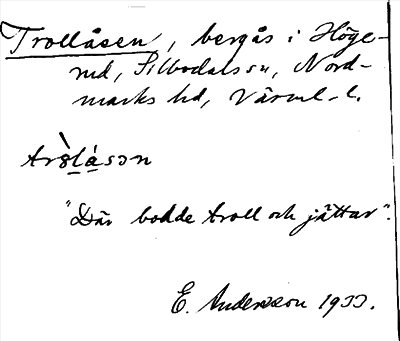 Trollåsen, bergås i Höge-
rud, Silbodals sn, Nord-
marks hd, Värml. l.
tròl̲á̲sən
"Där bodde troll och jättar".
E. Andersson 1933.